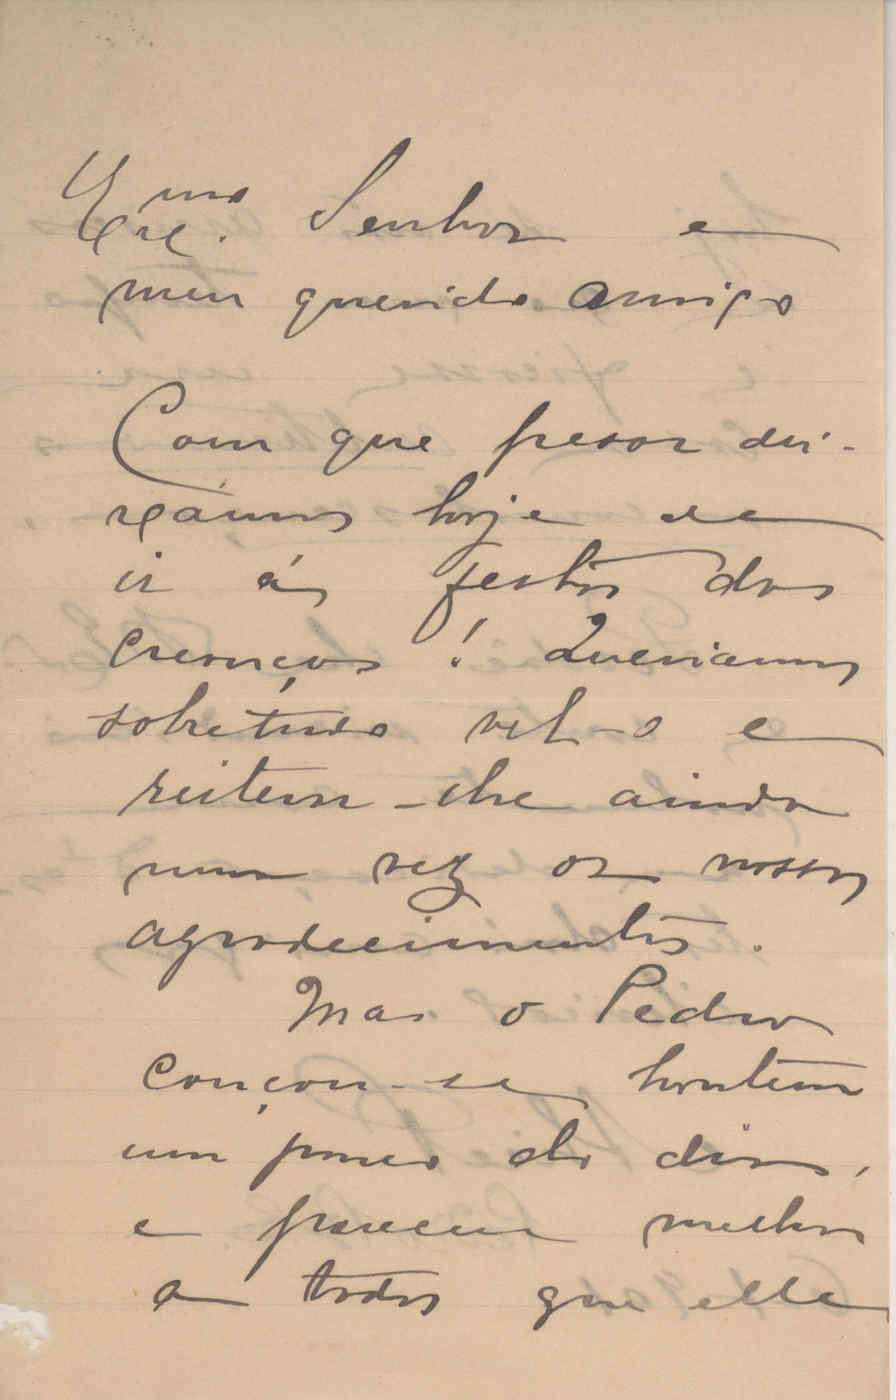 Exmo. Senhor e
meu querido amigo
Com que pesar dei-
xámos hoje de
ir ás festas das
creanças! Queriamos
sobretudo vel-o e
reiterar-lhe ainda
uma vez os nossos
agradecimentos.
Mas o Pedro
cançou-se hontem
um pouco de dia,
e pareceu melhor
a todos que elle